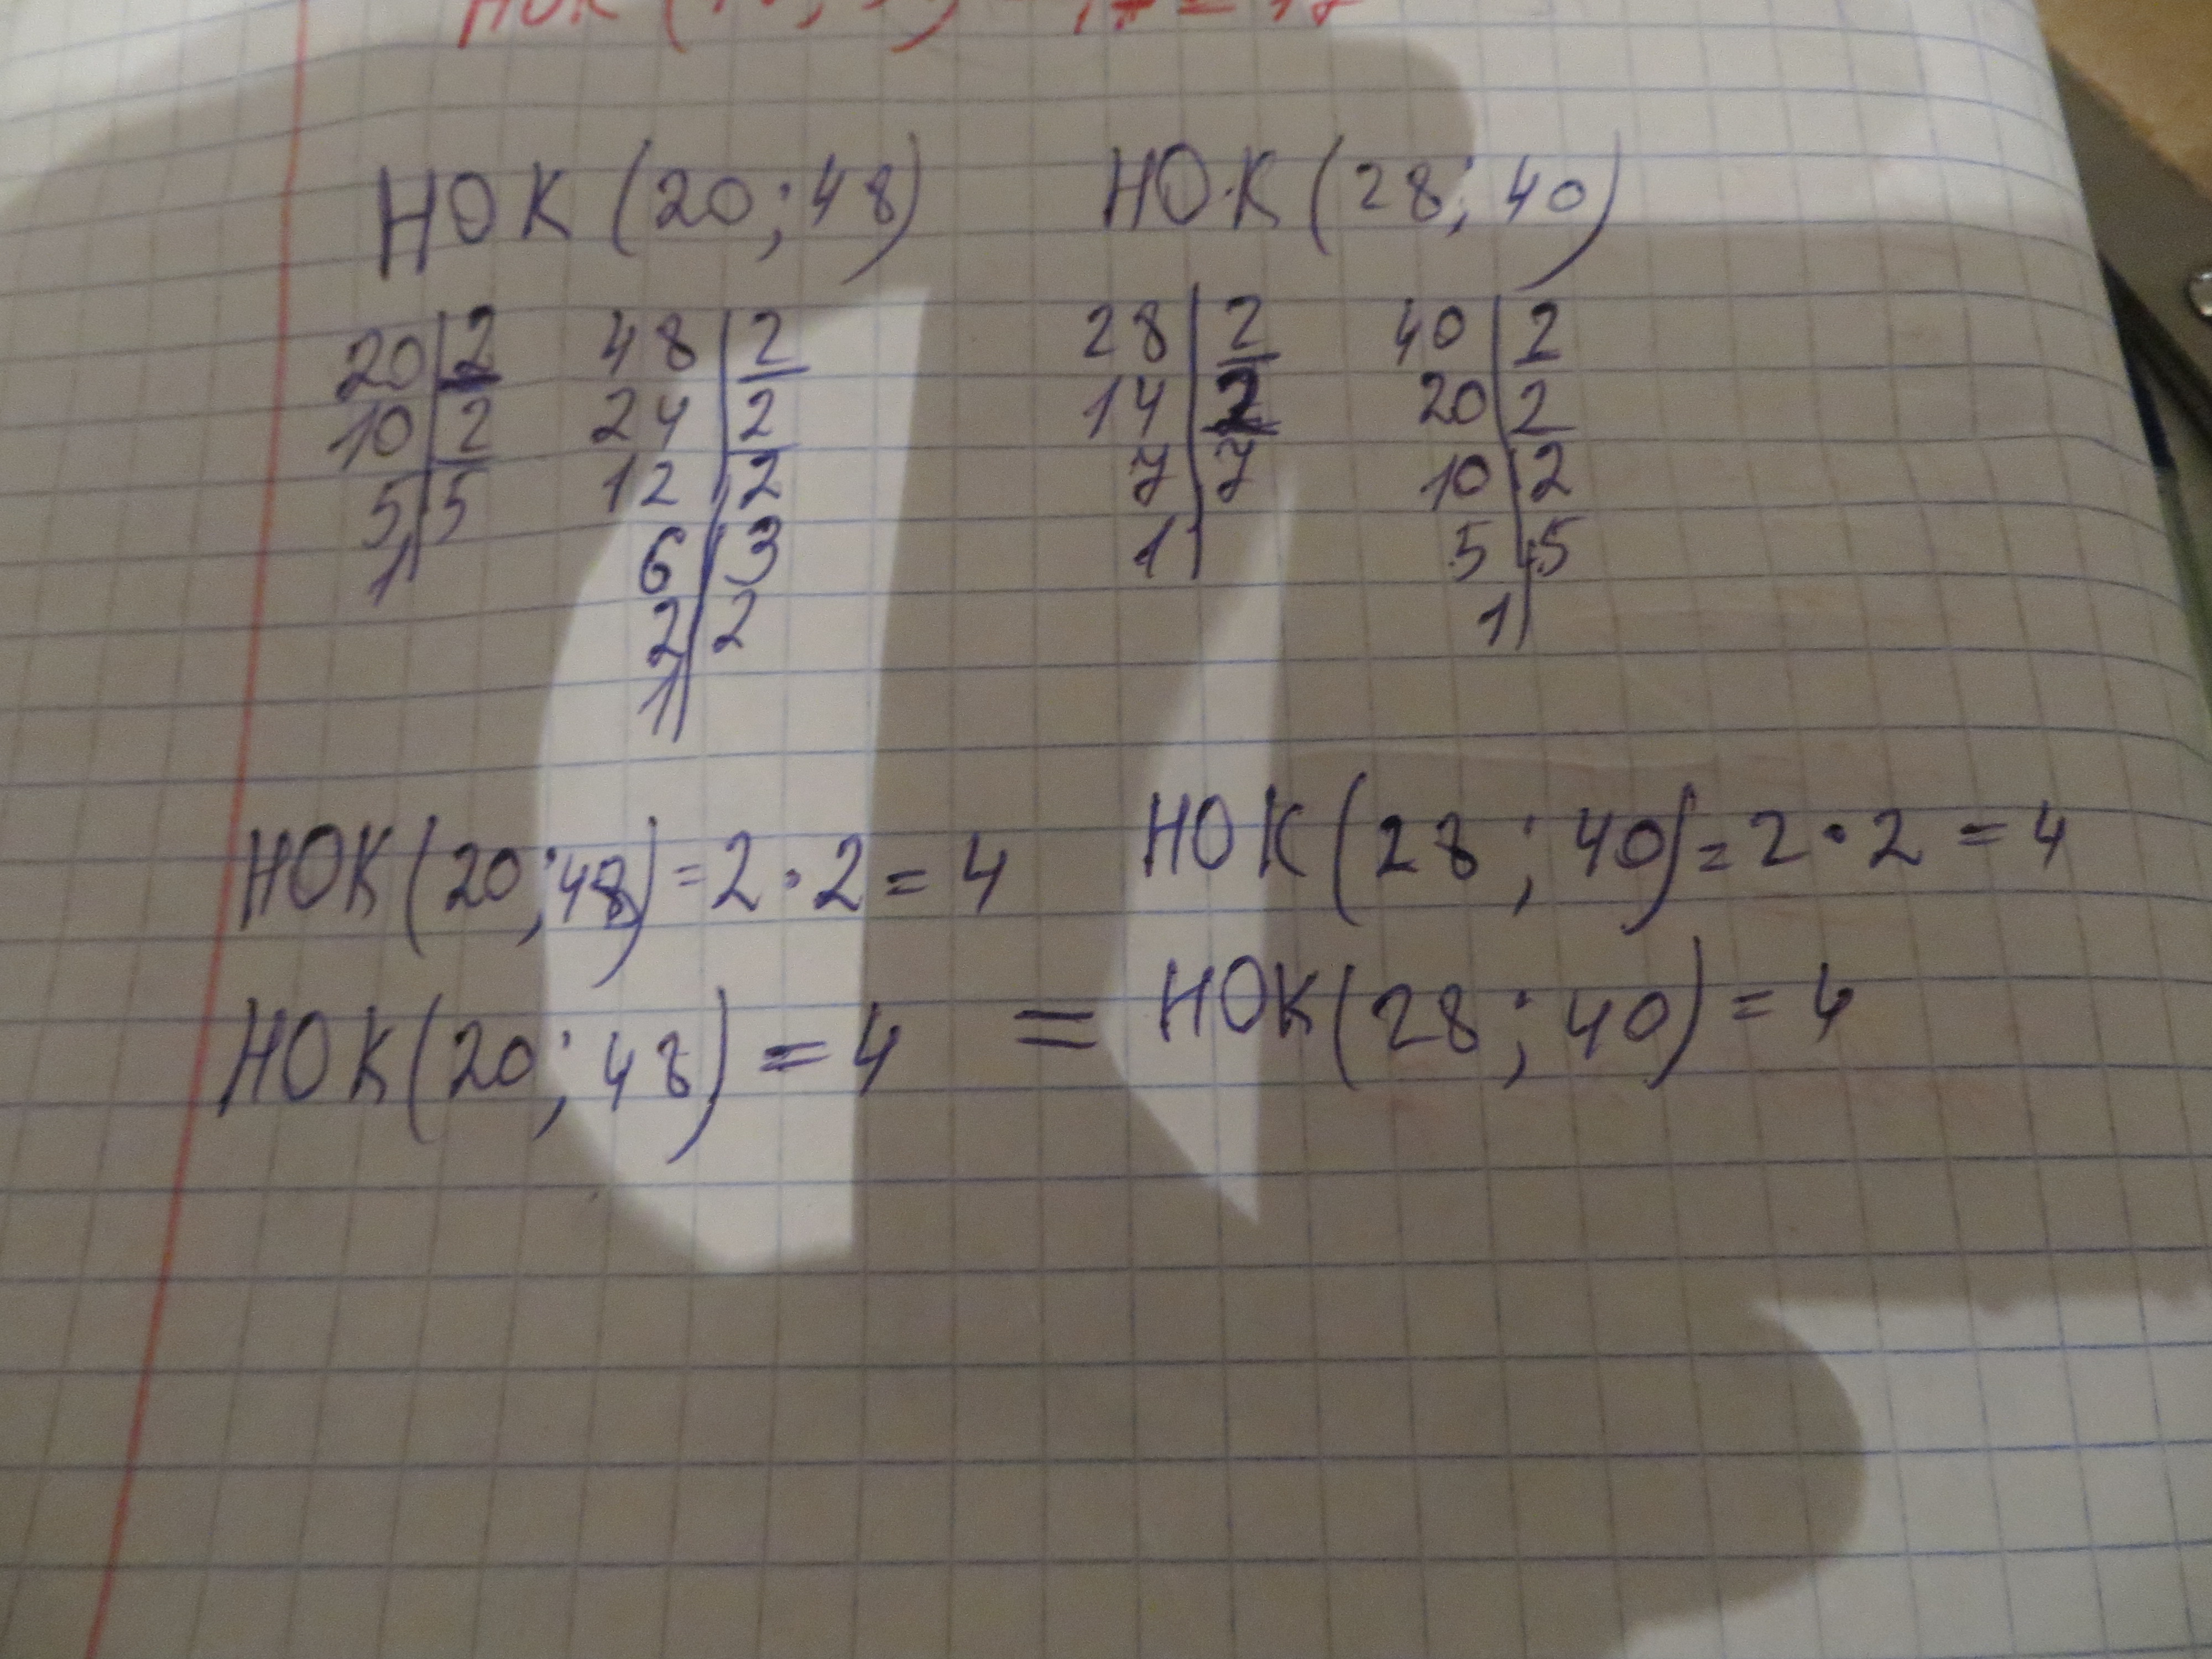 НОК (20; 48) НОК (28; 40)
20|2 48|2 28|2 40|2
10|2 24|2 14|2 20|2
5|5 12|2 7|7 10|2
1| 6|3 1| 5|5
2|2 1|
1|
НОК(20;48)=2·2=4 НОК(28;40)=2·2=4
НОК(20;48)=4 = НОК(28;40)=4